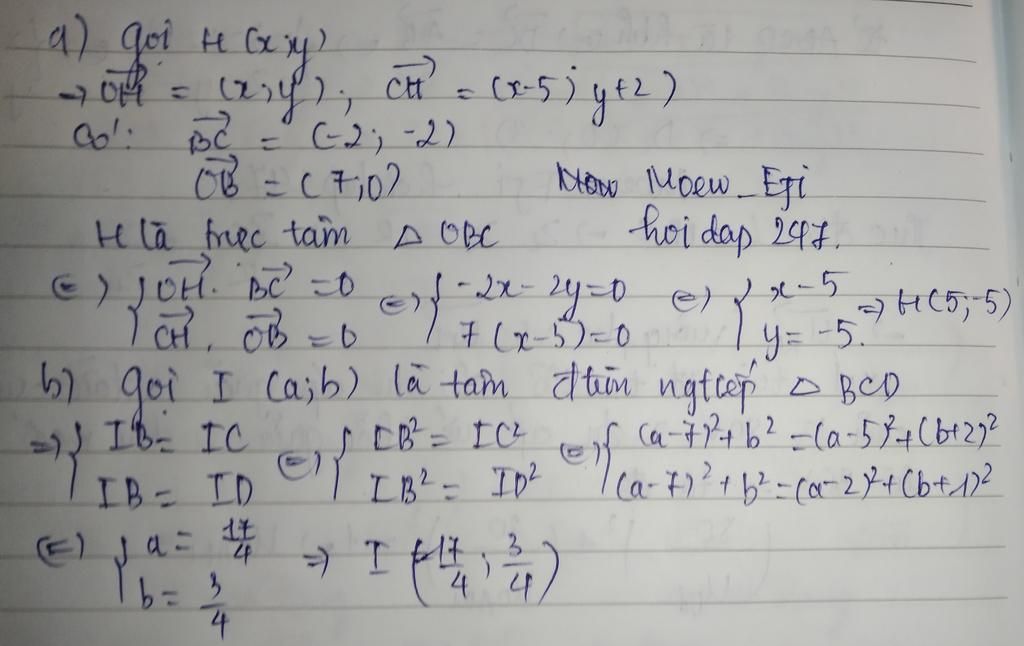 a) gọi H (x;y)
→ \vec{OH} = (x;y); \vec{CH} = (x-5; y+2)
Có: \vec{BC} = (-2; -2)
\vec{OB} = (7;0) Moew_Eji
H là trực tâm △ OBC hoidap 247.
⇔ { \vec{OH}. \vec{BC} = 0 ; \vec{CH}. \vec{OB} = 0 ⇔ { -2x - 2y = 0 ; 7(x-5) = 0 ⇔ { x - 5 ; y = -5. ⇒ H(5;-5)
b) gọi I (a;b) là tâm đtròn ngtiếp △ BCD
⇒ { IB = IC ; IB = ID ⇔ { IB² = IC² ; IB² = ID² ⇔ { (a-7)² + b² = (a-5)² + (b+2)² ; (a-7)² + b² = (a-2)² + (b+1)²
⇔ { a = 17/4 ; b = 3/4 ⇒ I (17/4 ; 3/4)